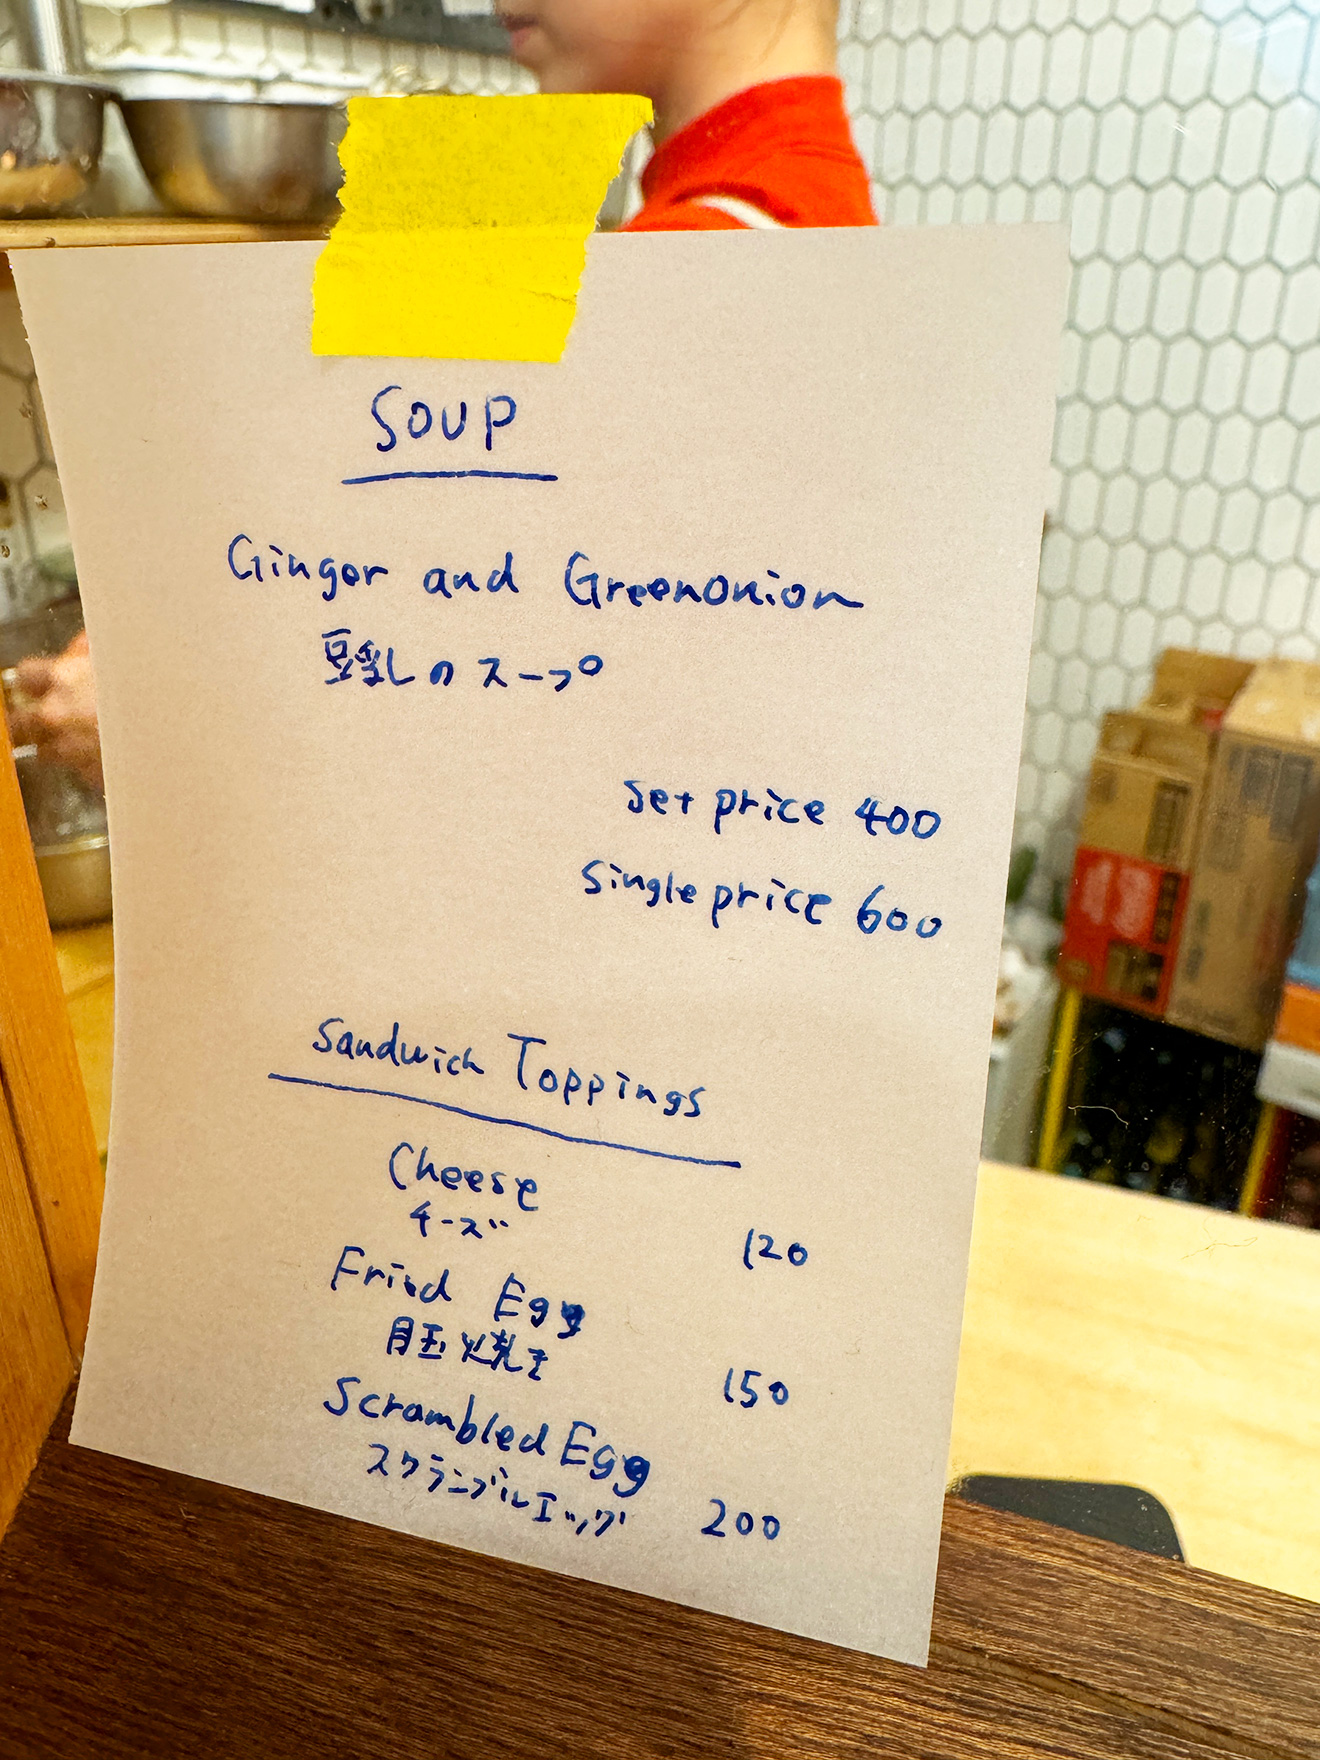 SOUP
Ginger and Greenonion
豆乳のスープ
set price 400
Single price 600
Sandwich Toppings
Cheese
チーズ
120
Fried Egg
目玉焼き
150
Scrambled Egg
スクランブルエッグ
200